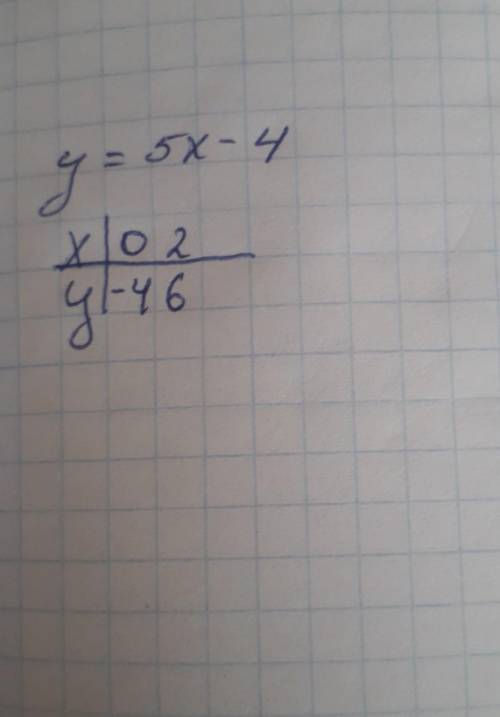 y = 5x - 4
x | 0 2
y | -4 6